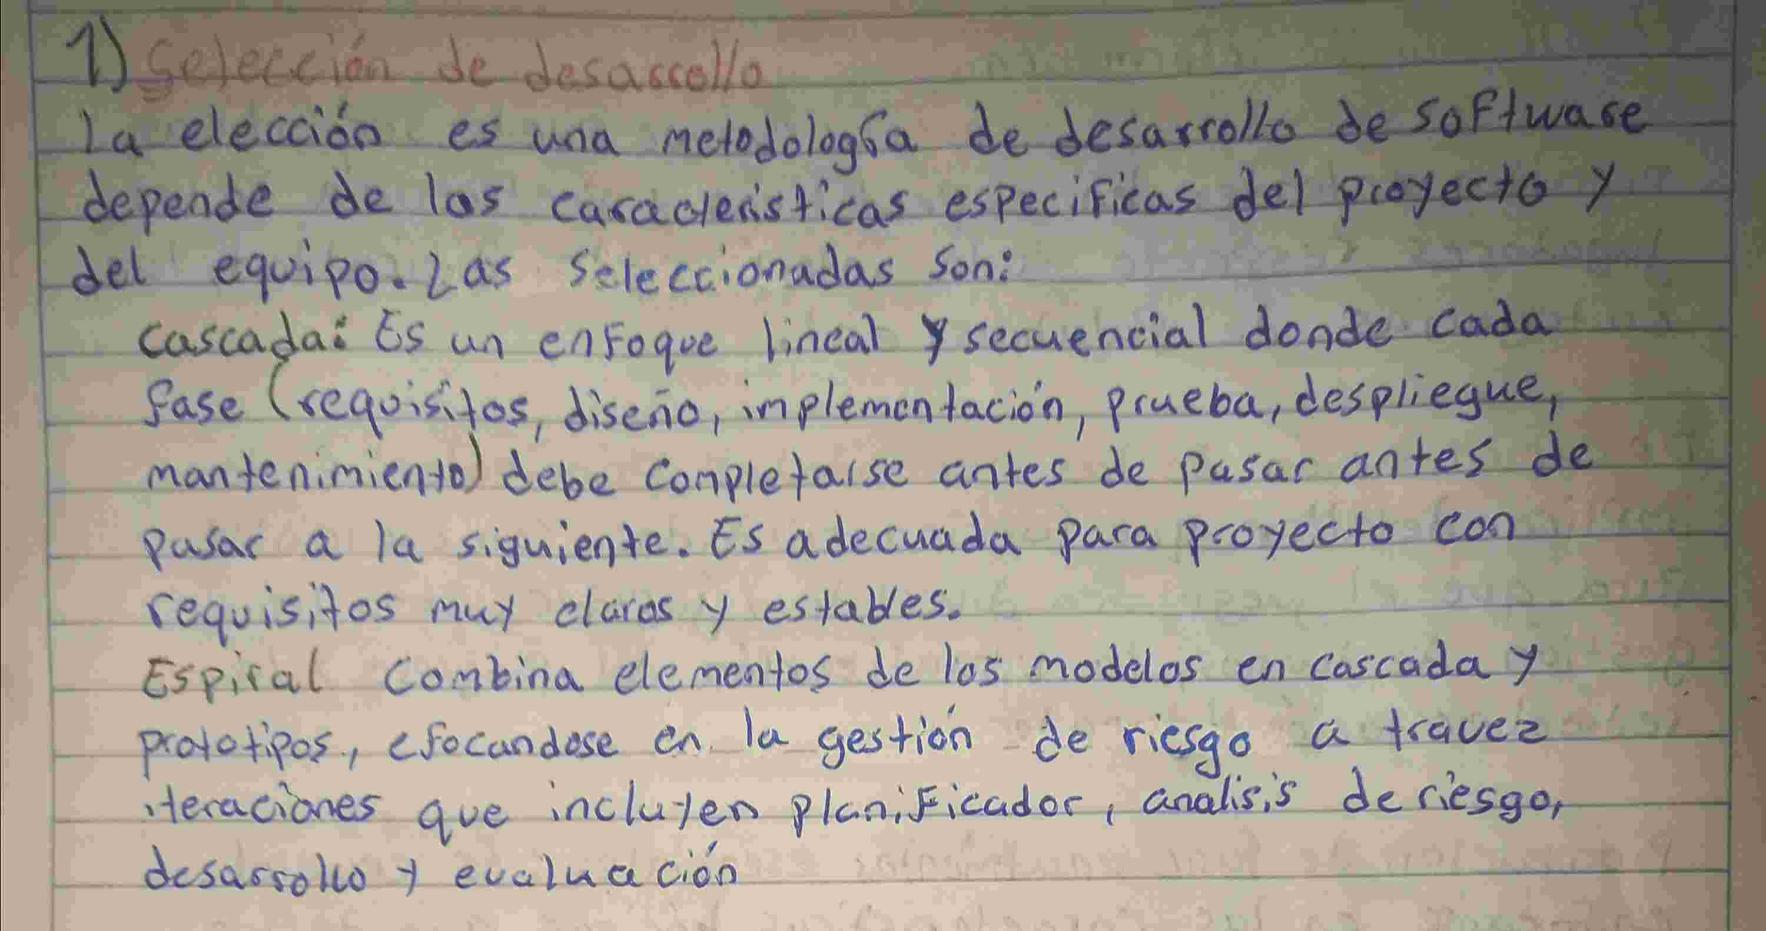 1) Selección de desarrollo
La elección es una metodología de desarrollo de software
depende de las caracteristicas especificas del proyecto y
del equipo. Las seleccionadas son:
cascada: Es un enfoque lineal y secuencial donde cada
fase (requisitos, diseño, implementación, prueba, despliegue,
mantenimiento) debe completarse antes de pasar antes de
pasar a la siguiente. Es adecuada para proyecto con
requisitos muy claros y estables.
Espiral combina elementos de los modelos en cascada y
prototipos, efocandose en la gestión de riesgo a travez
iteraciones que incluyen planificador, analisis de riesgo,
desarrollo y evaluación